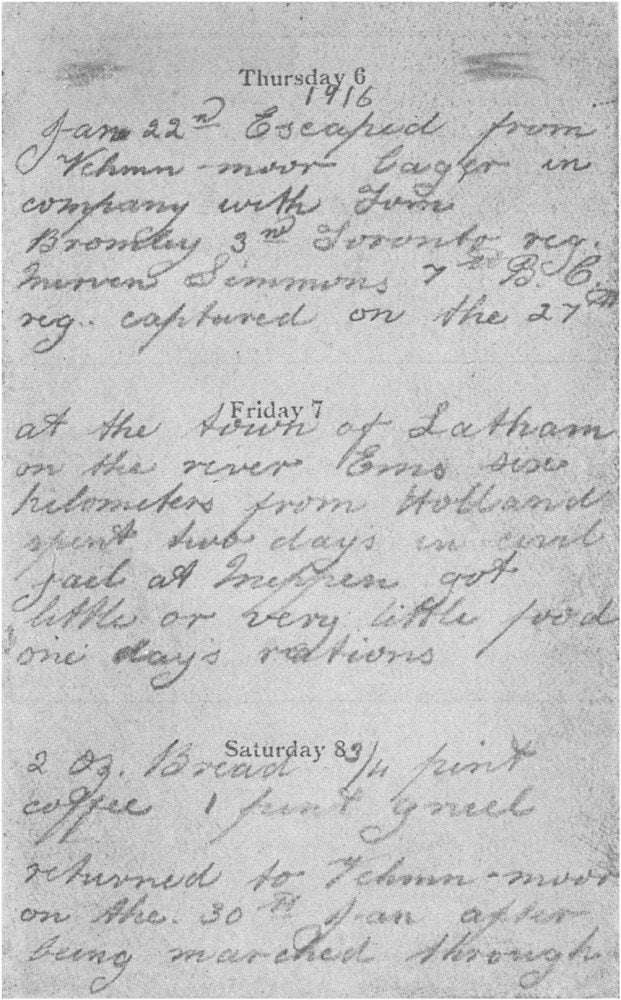 Thursday 6
1916
Jan 22nd Escaped from
Vehmn-moor lager in
company with Tom
Bromley 3rd Toronto reg.
Mervin Simmons 7th B. C.
reg. captured on the 27th
Friday 7
at the town of Latham
on the river Ems six
kilometers from Holland
spent two days in civil
jail at Meppen got
little or very little food
one days rations
Saturday 8
2 Oz. Bread 3/4 pint
coffee 1 pint gruel
returned to Vehmn-moor
on the. 30th Jan after
being marched through